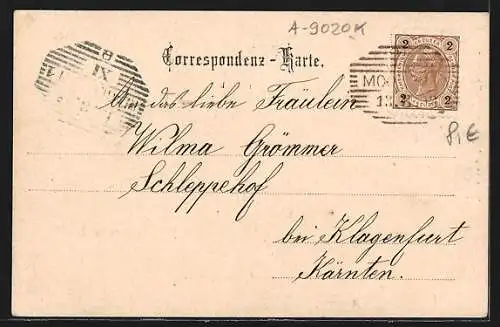 A-9020K
Correspondenz-Karte.
2 2
2 2
XI
MO
13
An das liebe Fräulein
Wilma Grömmer
Schleppehof
8,€
bei Klagenfurt
Kärnten.